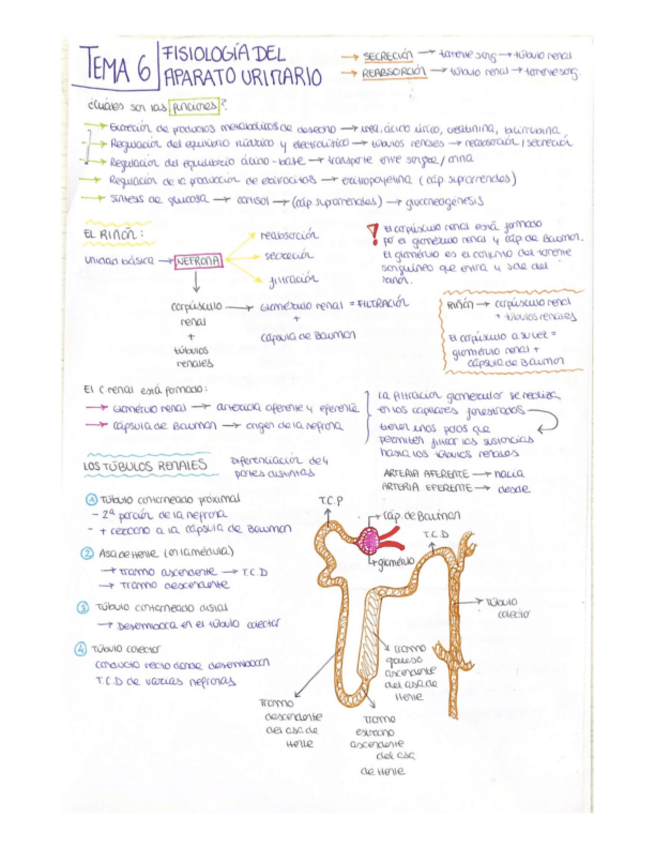 TEMA 6
FISIOLOGÍA DEL
APARATO URINARIO
→ SECRECIÓN → torrente sang → túbulo renal
→ REABSORCIÓN → túbulo renal → torrente sang.
¿Cuáles son las funciones?
→ Excreción de productos metabólicos de desecho → urea, ácido úrico, creatinina, bilirrubina
→ Regulación del equilibrio hídrico y electrolítico → túbulos renales → reabsorción / secreción
→ Regulación del equilibrio ácido-base → transporte entre sangre / orina
→ Regulación de la producción de eritrocitos → eritropoyetina (cáp. suprarrenales)
→ Síntesis de glucosa → cortisol → (cáp. suprarrenales) → gluconeogénesis
EL RIÑÓN:
unidad básica → NEFRONA
reabsorción
secreción
filtración
corpúsculo → Glomérulo renal = FILTRACIÓN
renal
+
+
cápsula de Bauman
túbulos
renales
! El corpúsculo renal está formado
por el glomérulo renal y cáp de Bauman.
El glomérulo es el conjunto del torrente
sanguíneo que entra y sale del
riñón.
RIÑÓN → corpúsculo renal
+ túbulos renales
El corpúsculo a su vez =
glomérulo renal +
cápsula de Bauman
El C. renal está formado:
→ Glomérulo renal → arteriola aferente y eferente
→ Cápsula de Bauman → origen de la nefrona
La filtración glomerular se realiza
en los capilares fenestrados
tienen unos poros que
permiten filtrar las sustancias
hasta los túbulos renales
ARTERIA AFERENTE → hacia
ARTERIA EFERENTE → desde
LOS TÚBULOS RENALES
Diferenciación de 4
partes distintas
① Túbulo contorneado proximal
- 2ª porción de la nefrona
- + cercano a la cápsula de Bauman
② Asa de Henle (en la médula)
→ Tramo ascendente → T.C.D
→ Tramo descendente
③ Túbulo contorneado distal
→ Desemboca en el túbulo colector
④ Túbulo colector
conducto recto donde desembocan
T.C.D de varias nefronas
T.C.P
cáp. de Bauman
T.C.D
glomérulo
Túbulo
colector
Tramo
grueso
ascendente
del asa de
Henle
Tramo
descendente
del asa de
Henle
Tramo
estrecho
ascendente
del asa
de Henle